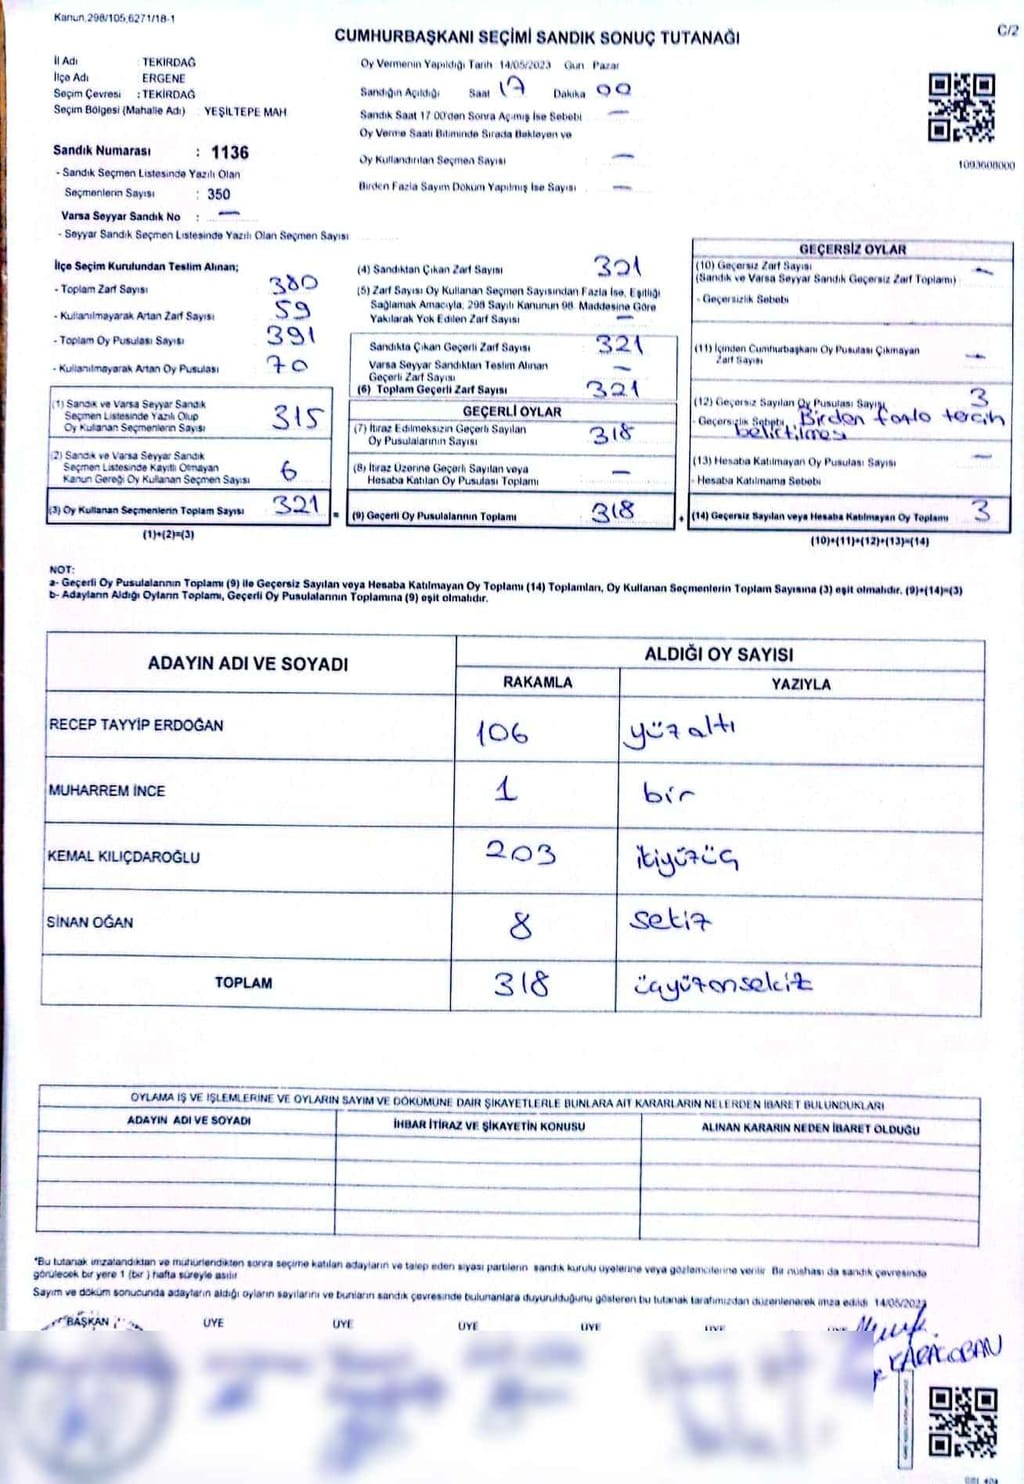 Kanun,298/105,6271/18-1
C/2
CUMHURBAŞKANI SEÇİMİ SANDIK SONUÇ TUTANAĞI
İl Adı : TEKİRDAĞ
İlçe Adı : ERGENE
Seçim Çevresi : TEKİRDAĞ
Seçim Bölgesi (Mahalle Adı) YEŞİLTEPE MAH
Sandık Numarası : 1136
- Sandık Seçmen Listesinde Yazılı Olan
Seçmenlerin Sayısı : 350
Varsa Seyyar Sandık No : —
- Seyyar Sandık Seçmen Listesinde Yazılı Olan Seçmen Sayısı
Oy Vermenin Yapıldığı Tarih 14/05/2023 Gün Pazar
Sandığın Açıldığı Saat 17 Dakika 00
Sandık Saat 17 00'den Sonra Açılmış İse Sebebi —
Oy Verme Saati Bitiminde Sırada Bekleyen ve
Oy Kullandırılan Seçmen Sayısı —
Birden Fazla Sayım Döküm Yapılmış İse Sayısı —
1093608000
İlçe Seçim Kurulundan Teslim Alınan;
- Toplam Zarf Sayısı 380
- Kullanılmayarak Artan Zarf Sayısı 59
- Toplam Oy Pusulası Sayısı 391
- Kullanılmayarak Artan Oy Pusulası 70
(1) Sandık ve Varsa Seyyar Sandık
Seçmen Listesinde Yazılı Olup
Oy Kullanan Seçmenlerin Sayısı 315
(2) Sandık ve Varsa Seyyar Sandık
Seçmen Listesinde Kayıtlı Olmayan
Kanun Gereği Oy Kullanan Seçmen Sayısı 6
(3) Oy Kullanan Seçmenlerin Toplam Sayısı 321
(1)+(2)=(3)
(4) Sandıktan Çıkan Zarf Sayısı 321
(5) Zarf Sayısı Oy Kullanan Seçmen Sayısından Fazla İse, Eşitliği
Sağlamak Amacıyla, 298 Sayılı Kanunun 98. Maddesine Göre
Yakılarak Yok Edilen Zarf Sayısı —
Sandıkta Çıkan Geçerli Zarf Sayısı 321
Varsa Seyyar Sandıktan Teslim Alınan
Geçerli Zarf Sayısı —
(6) Toplam Geçerli Zarf Sayısı 321
GEÇERLİ OYLAR
(7) İtiraz Edilmeksizin Geçerli Sayılan
Oy Pusulalarının Sayısı 318
(8) İtiraz Üzerine Geçerli Sayılan veya
Hesaba Katılan Oy Pusulası Toplamı —
= (9) Geçerli Oy Pusulalarının Toplamı 318 +
GEÇERSİZ OYLAR
(10) Geçersiz Zarf Sayısı —
(Sandık ve Varsa Seyyar Sandık Geçersiz Zarf Toplamı)
- Geçersizlik Sebebi
(11) İçinden Cumhurbaşkanı Oy Pusulası Çıkmayan
Zarf Sayısı —
(12) Geçersiz Sayılan Oy Pusulası Sayısı 3
- Geçersizlik Sebebi Birden fazla tercih
belirtilmesi
(13) Hesaba Katılmayan Oy Pusulası Sayısı —
- Hesaba Katılmama Sebebi
(14) Geçersiz Sayılan veya Hesaba Katılmayan Oy Toplamı 3
(10)+(11)+(12)+(13)=(14)
NOT:
a- Geçerli Oy Pusulalarının Toplamı (9) ile Geçersiz Sayılan veya Hesaba Katılmayan Oy Toplamı (14) Toplamları, Oy Kullanan Seçmenlerin Toplam Sayısına (3) eşit olmalıdır. (9)+(14)=(3)
b- Adayların Aldığı Oyların Toplamı, Geçerli Oy Pusulalarının Toplamına (9) eşit olmalıdır.
ADAYIN ADI VE SOYADI
ALDIĞI OY SAYISI
RAKAMLA YAZIYLA
RECEP TAYYİP ERDOĞAN 106 yüz altı
MUHARREM İNCE 1 bir
KEMAL KILIÇDAROĞLU 203 ikiyüzüç
SİNAN OĞAN 8 sekiz
TOPLAM 318 üçyüzonsekiz
OYLAMA İŞ VE İŞLEMLERİNE VE OYLARIN SAYIM VE DÖKÜMÜNE DAİR ŞİKAYETLERLE BUNLARA AİT KARARLARIN NELERDEN İBARET BULUNDUKLARI
ADAYIN ADI VE SOYADI İHBAR İTİRAZ VE ŞİKAYETİN KONUSU ALINAN KARARIN NEDEN İBARET OLDUĞU
*Bu tutanak imzalandıktan ve mühürlendikten sonra seçime katılan adayların ve talep eden siyasi partilerin sandık kurulu üyelerine veya gözlemcilerine verilir. Bir nüshası da sandık çevresinde
görülecek bir yere 1 (bir) hafta süreyle asılır
Sayım ve döküm sonucunda adayların aldığı oyların sayılarını ve bunların sandık çevresinde bulunanlara duyurulduğunu gösteren bu tutanak tarafımızdan düzenlenerek imza edildi 14/05/2023
BAŞKAN ÜYE ÜYE ÜYE ÜYE
KARAÇOBAN